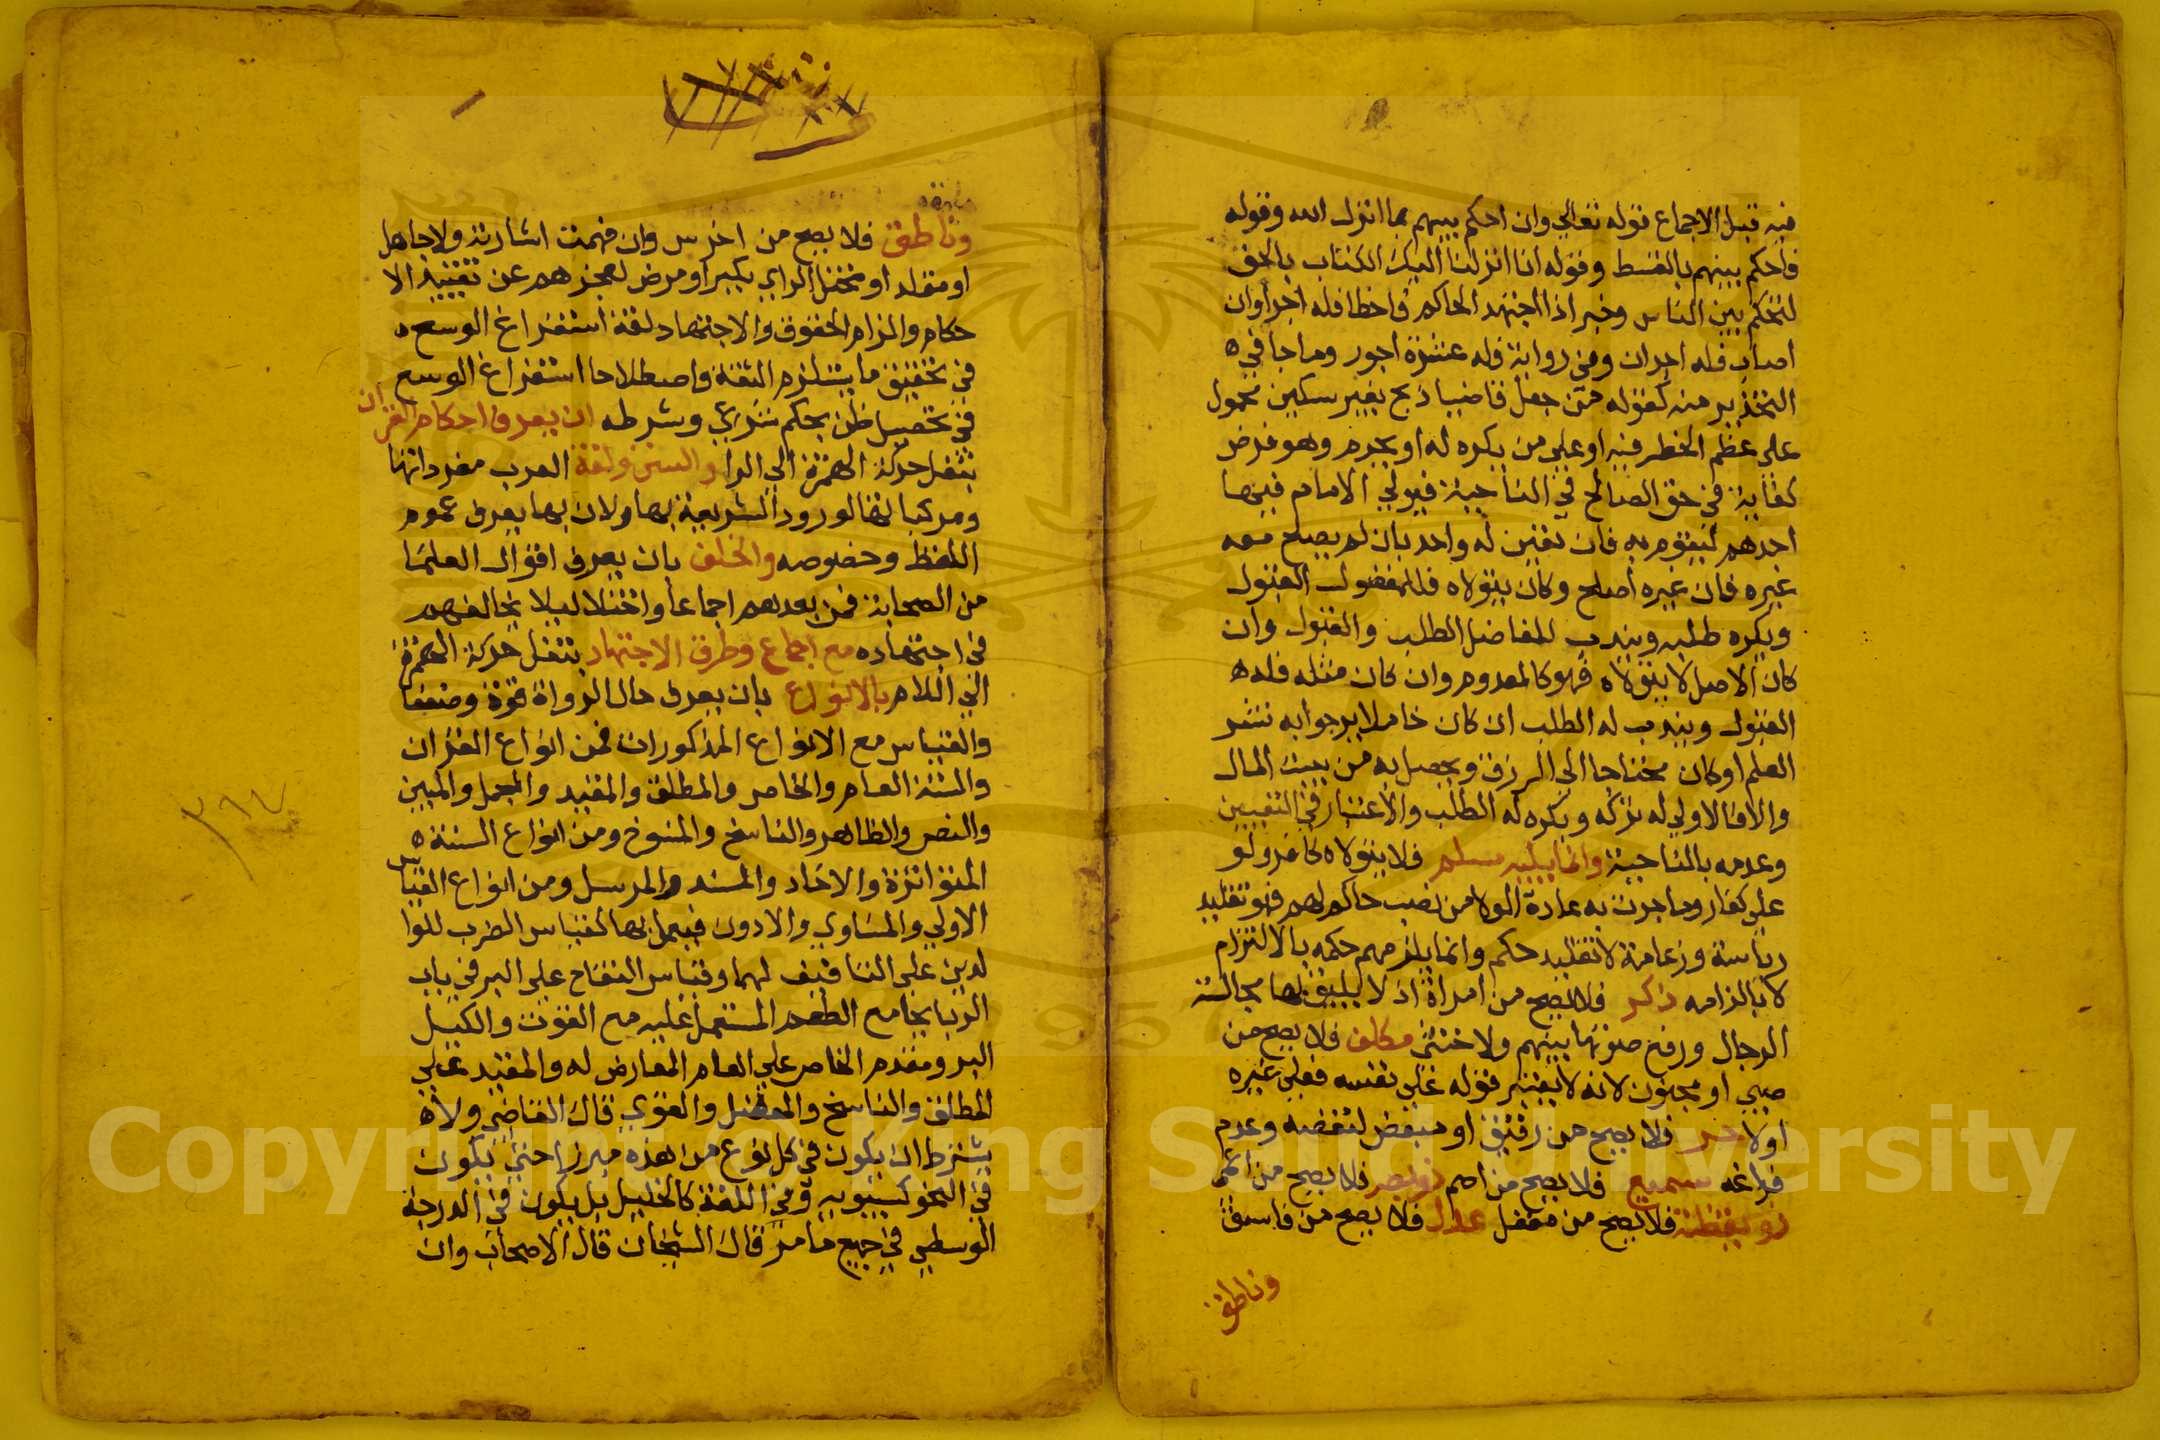 فيه قبل الاجماع قوله تعالي وان احكم بينهم بما انزل الله وقوله
فاحكم بينهم بالقسط وقوله انا انزلنا اليك الكتاب بالحق
لتحكم بين الناس وخبر اذا اجتهد الحاكم فاخطا فله اجر وان
اصاب فله اجران وفي رواية فله عشرة اجور وما جا في ه
التحذير منه كقوله من جعل قاضيا ذبح بغير سكين محمول
علي عظم الخطر فيه او علي من يكره له او يحرم وهو فرض
كفاية في حق الصالح في الناحية فيولي الامام فيها
احدهم ليقوم به فان تعين له واحد بان لم يصلح معه
غيره فان غيره اصلح وكان يتولاه فللمفضول القبول
ويكره طلبه ويندب للفاضل الطلب والقبول وان
كان الاصل لا يتولاه فهو كالمعدوم وان كان مثله فله ه
القبول ويندب له الطلب ان كان خاملا يرجوا به نشر
العلم او كان محتاجا الي الرزق ويحصل به من بيت المال
والا فالاولي له تركه ويكره له الطلب والاعتبار في التعيين
وعدمه بالناحية وانما يليه مسلم فلا يتولاه كافر ولو
علي كفار وما جرت به عادة الولا من نصب حاكم لهم فهو تقليد
رياسة وزعامة لا تقليد حكم وانما يلزمهم حكمه بالالتزام
لا بالزامه ذكر فلا يصح من امراة اذ لا يليق بها مجالسة
الرجال ورفع صوتها بينهم ولا خنثي مكلف فلا يصح من
صبي او مجنون لانه لا يعتبر قوله علي نفسه فعلي غيره
اولا حر فلا يصح من رقيق او مبعض لنقصه وعدم
فراغه سميع فلا يصح من اصم ذو بصر فلا يصح من اعمي
ذو يقظة فلا يصح من مغفل عدل فلا يصح من فاسق
وناطق
وناطق فلا يصح من اخرس وان فهمت اشارته ولا جاهل
او مقلد او مختل الراي بكبر او مرض لعجزهم عن تنفيذ الا
حكام والزام الحقوق والاجتهاد لغة استفراغ الوسع ه
في تحقيق ما يستلزم المشقة واصطلاحا استفراغ الوسع
في تحصيل ظن بحكم شرعي وشرطه ان يعرف احكام القران
بنقل حركة الهمزة الي الرا والسنن ولغة العرب مفرداتها
ومركباتها لورود الشريعة بها ولان بها يعرف عموم
اللفظ وخصوصه والخلف بان يعرف اقوال العلما
من الصحابة فمن بعدهم اجماعا واختلافا ليلا يخالفهم
في اجتهاده مع اجماع وطرق الاجتهاد بنقل حركة الهمزة
الي اللام بالانواع بان يعرف حال الرواة قوة وضعفا
والقياس مع الانواع المذكورات فمن انواع القران
والسنة العام والخاص والمطلق والمقيد والمجمل والمبين
والنص والظاهر والناسخ والمنسوخ ومن انواع السنة ه
المتواترة والاحاد والمسند والمرسل ومن انواع القياس
الاولي والمساوي والادون فيعمل بها كقياس الضرب للوا
لدين علي التافيف لهما وقياس التفاح علي البر في باب
الربا بجامع الطعم المشتمل عليه مع القوت والكيل
البر ومقدم الخاص علي العام المعارض له والمقيد علي
المطلق والناسخ والمتصل والقوي قال القاضي ولا ه
يشترط ان يكون في كل نوع من هذه مبرزا حتي يكون
في النحو كسيبويه وفي اللغة كالخليل بل يكون في الدرجة
الوسطي في جميع ما مر قال الشيخان قال الاصحاب وان
Copyright © King Saud University
1957